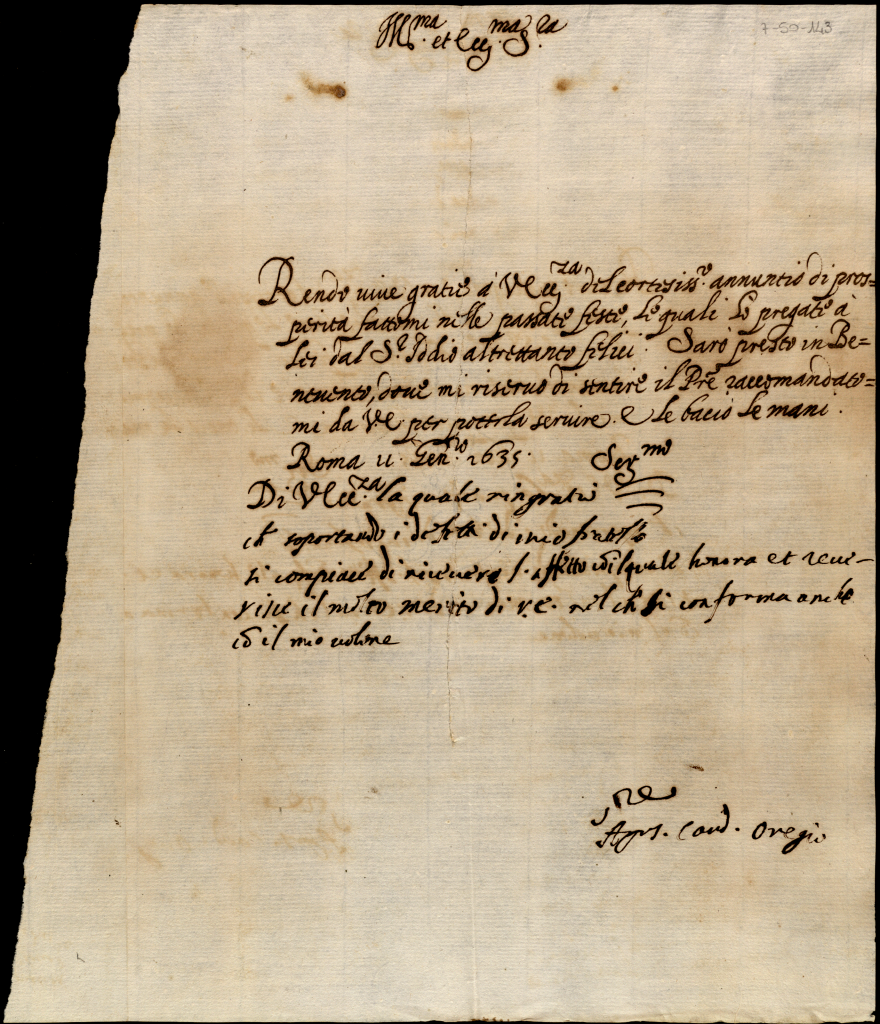 7-50-143
Ill.ma et Ecc.ma S.ra
Rendo vive gratie á V Ecc.za del cortesiss.o annuntio di pros=
perità fattomi nelle passate feste, le quali Le pregate à
Lei dal S.r Iddio altrettanto felici. Sarò presto in Be=
nevento, dove mi riservo di sentire il Prẽ raccomandato=
mi da V.E. per poterla servire. E le bacio le mani.
Roma 11. Gen.ro 1635.
Di V Ecc.za la quale ringratio
ch soportando i difetti di mio fratello
si compiace di ricevere l'affetto cõ il quale honora et reve-
risce il molto merito di v.e. nel ch si conforma anche
cõ il mio volere
Ser.mo
s.re
Ags. Card. Oregio